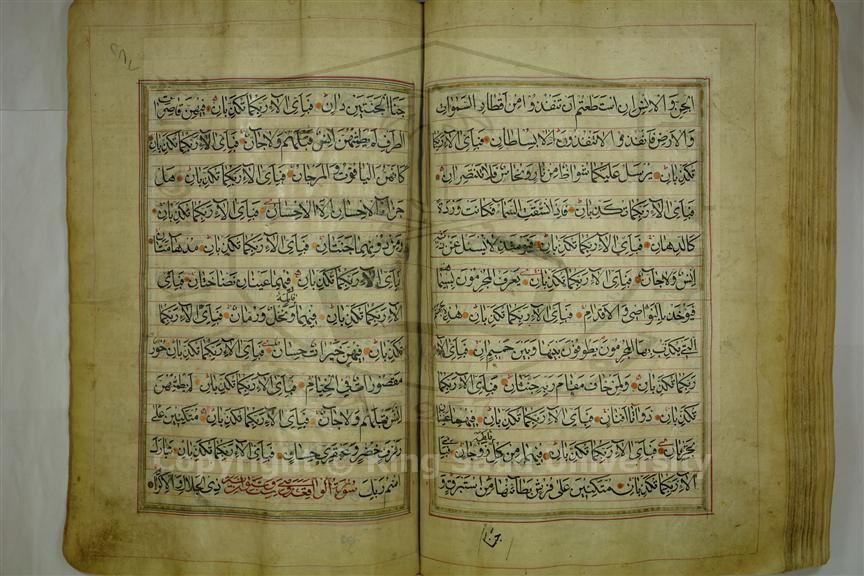 الجن والانس ان استطعتم ان تنفذوا من اقطار السموات
والارض فانفذوا لا تنفذون الا بسلطان فباي الاء ربكما
تكذبان يرسل عليكما شواظ من نار ونحاس فلا تنتصران
فباي الاء ربكما تكذبان فاذا انشقت السماء فكانت وردة
كالدهان فباي الاء ربكما تكذبان فيومئذ لا يسئل عن ذنبه
انس ولا جان فباي الاء ربكما تكذبان يعرف المجرمون بسيمهم
فيوخذ بالنواصي والاقدام فباي الاء ربكما تكذبان هذه جهنم
التي يكذب بها المجرمون يطوفون بينها وبين حميم ان فباي الاء
ربكما تكذبان ولمن خاف مقام ربه جنتان فباي الاء ربكما
تكذبان ذواتا افنان فباي الاء ربكما تكذبان فيهما عينان
تجريان فباي الاء ربكما تكذبان فيهما من كل فاكهة زوجان فباي
الاء ربكما تكذبان متكئين على فرش بطائنها من استبرق و
جنا
جنا الجنتين دان فباي الاء ربكما تكذبان فيهن قاصرات
الطرف لم يطمثهن انس قبلهم ولا جان فباي الاء ربكما تكذبان
كانهن الياقوت والمرجان فباي الاء ربكما تكذبان هل
جزاء الاحسان الا الاحسان فباي الاء ربكما تكذبان
ومن دونهما جنتان فباي الاء ربكما تكذبان مدهامتان
فباي الاء ربكما تكذبان فيهما عينان نضاختان فباي
الاء ربكما تكذبان فيهما فاكهة ونخل ورمان فباي الاء ربكما
تكذبان فيهن خيرات حسان فباي الاء ربكما تكذبان حور
مقصورات في الخيام فباي الاء ربكما تكذبان لم يطمثهن
انس قبلهم ولا جان فباي الاء ربكما تكذبان متكئين على
رفرف خضر وعبقري حسان فباي الاء ربكما تكذبان تبارك
اسم ربك ذي الجلال والاكرام
سورة الواقعة
Copyright © King Saud University